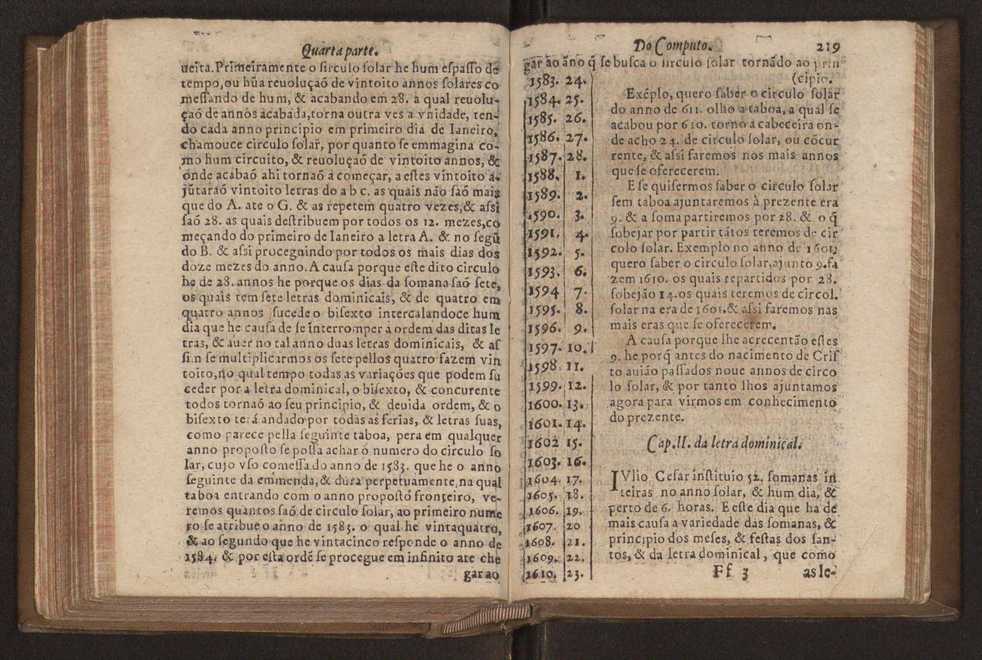 Quarta parte.
ueita. Primeiramente o sirculo solar he hum espasso de
tempo, ou hũa reuoluçaõ de vintoito annos solares co
messando de hum, & acabando em 28. a qual reuolu-
çaõ de annos acabada, torna outra ves a vnidade, ten-
do cada anno principio em primeiro dia de Ianeiro,
chamouce circulo solar, por quanto se emmagina co-
mo hum circuito, & reuoluçaõ de vintoito annos, &
onde acabaõ ahi tornaõ a começar, a estes vintoito a-
jũtaraõ vintoito letras do a b c. as quais não saõ mais
que do A. ate o G. & as repetem quatro vezes, & assi
saõ 28. as quais destribuem por todos os 12. mezes, co
meçando do primeiro de Ianeiro a letra A. & no segũ
do B. & assi procegnindo por todos os mais dias dos
doze mezes do anno. A causa porque este dito circulo
he de 28. annos he porque os dias da somana saõ sete,
os quais tem sete letras dominicais, & de quatro em
quatro annos sucede o bisexto intercalandoce hum
dia que he causa de se interromper a ordem das ditas le
tras, & auer no tal anno duas letras dominicais, & as
si an se multiplicarmos os sete pellos quatro fazem vin
toito, no qual tempo todas as variações que podem su
ceder por a letra dominical, o bisexto, & concurente
todos tornaõ ao seu principio, & deuida ordem, & o
bisexto terá andado por todas as ferias, & letras suas,
como parece pella seguinte taboa, pera em qualquer
anno proposto se possa achar o numero do circulo so
lar, cujo vso comessa do anno de 1583. que he o anno
seguinte da emmenda, & dura perpetuamente, na qual
taboa entrando com o anno propostó fronteiro, ve-
remos quantos saõ de circulo solar, ao primeiro nume
ro se atribue o anno de 1583. o qual he vintaquatro,
& ao segundo que he vintacinco responde o anno de
1584. & por esta ordẽ se procegue em infinito ate che
gar ao
Do Computo. 219
gar ao ano q̃ se busca o sirculo solar tornãdo ao prin
(cipio.
1583. 24.
1584. 25.
1585. 26.
1586. 27.
1587. 28.
1588. 1.
1589. 2.
1590. 3.
1591. 4.
1592. 5.
1593. 6.
1594 7.
1595. 8.
1596. 9.
1597. 10.
1598. 11.
1599. 12.
1600. 13.
1601. 14.
1602 15.
1603. 16.
1604. 17.
1605. 18.
1606. 19.
1607. 20
1608. 21.
1609. 22.
1610. 23.
Exẽplo, quero saber o circulo solar
do anno de 611. olho a taboa, a qual se
acabou por 610. torno a cabeceira on-
de acho 24. de circulo solar, ou cõcur
rente, & assi faremos nos mais annos
que se oferecerem.
E se quisermos saber o circulo solar
sem taboa ajuntaremos à prezente era
9. & a soma partiremos por 28. & o q̃
sobejar por partir tãtos teremos de cir
colo solar. Exemplo no anno de 1601.
quero saber o circulo solar, ajunto 9. fa
zem 1610. os quais repartidos por 28.
sobejão 14. os quais teremos de circol.
solar na era de 1601. & assi faremos nas
mais eras que se oferecerem.
A causa porque lhe acrecentão estes
9. he porq̃ antes do nacimento de Cris
to auião passados noue annos de circo
lo solar, & por tanto lhos ajuntamos
agora para virmos em conhecimento
do prezente.
Cap. II. da letra dominical.
IVlio Cesar instituio 52. somanas in
teiras no anno solar, & hum dia, &
perto de 6. horas. E este dia que ha de
mais causa a variedade das somanas, &
principio dos meses, & festas dos san-
tos, & da letra dominical, que como
Ff 3 as le-